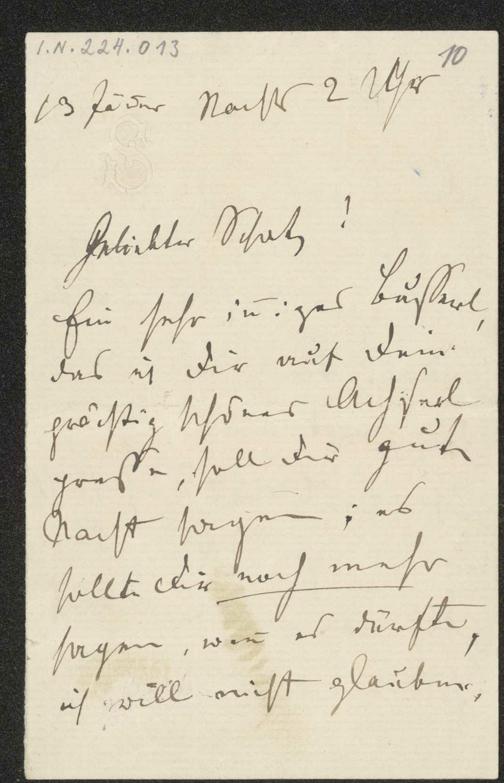 I.N. 224.013
10
13 Jänner Nachts 2 Uhr
Geliebter Schatz!
Ein sehr inniges Busserl,
das ich Dir auf Dein
prächtig schönes Achserl
presse, soll Dir gute
Nacht sagen; es
sollte Dir noch mehr
sagen, wenn es dürfte,
ich will nicht glauben,